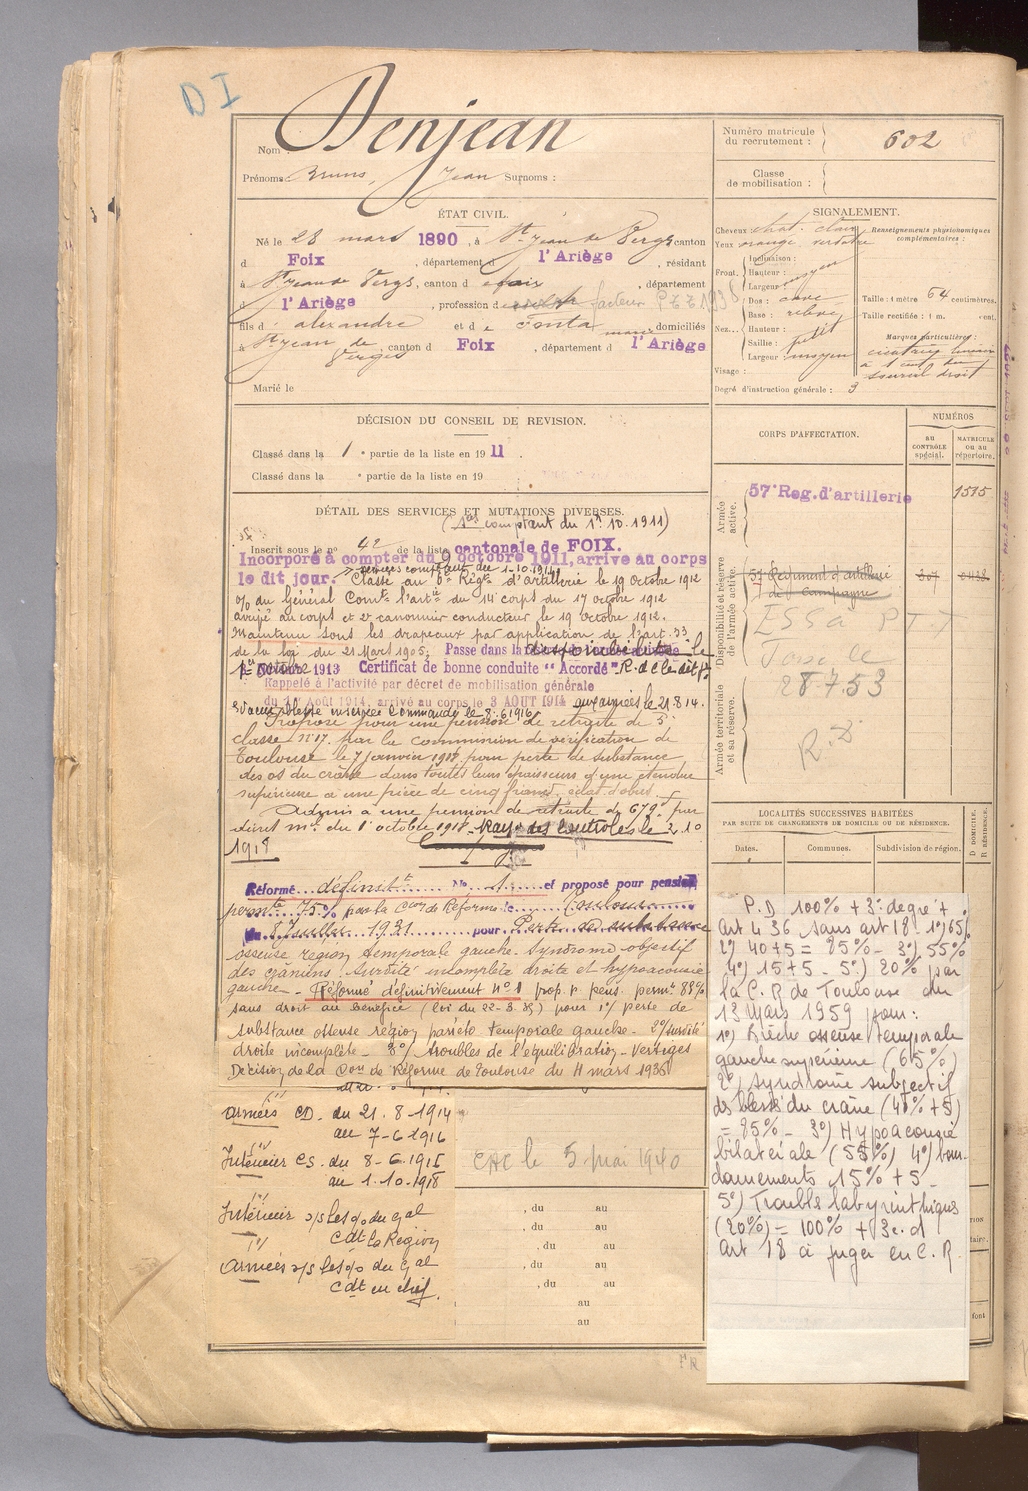 DI
Nom : Denjean
Numéro matricule du recrutement : 602
Prénoms Bruno, Jean Surnoms :
Classe de mobilisation :
ÉTAT CIVIL.
Né le 28 mars 1890, à St Jean de Verges canton
d Foix, département d l'Ariège, résidant
à St Jean de Verges, canton d Foix, département
d l'Ariège, profession d facteur PTT 1938
fils d' Alexandre et de Fonta Marie domiciliés
à St Jean de Verges, canton d Foix, département d l'Ariège
Marié le
SIGNALEMENT.
Cheveux chat. clair
Yeux orange verdâtre
Front. Inclinaison :
Hauteur : moyen
Largeur :
Nez... Dos : cave
Base : relevé
Hauteur : petit
Saillie :
Largeur : moyen
Visage :
Renseignements physionomiques complémentaires :
Taille : 1 mètre 64 centimètres.
Taille rectifiée : 1 m. cent.
Marques particulières :
cicatrice
à 1 cent du
sourcil droit
Degré d'instruction générale : 3
DÉCISION DU CONSEIL DE REVISION.
Classé dans la 1e partie de la liste en 1911.
Classé dans la e partie de la liste en 19
CORPS D'AFFECTATION.
NUMÉROS
AU CONTRÔLE spécial.
MATRICULE ou au répertoire.
Armée active.
57e Reg. d'artillerie 1515
Disponibilité et réserve de l'armée active.
57 Régiment d'artillerie 207 2438
de Campagne
ESSA PTT
Toulouse
28.7.53
Armée territoriale et sa réserve.
R.D
DÉTAIL DES SERVICES ET MUTATIONS DIVERSES.
(1er comptant du 1r 10.1911)
Inscrit sous le no 42 de la liste cantonale de FOIX.
Incorporé à compter du 9 octobre 1911, arrive au corps
services comptant du 1-10-1911
le dit jour. Classé au 6e Régt d'artillerie le 19 octobre 1912
o/o du Général Comt l'artie du 14e corps du 17 octobre 1912
arrivé au corps et 2e canonnier conducteur le 19 octobre 1912.
Maintenu sous les drapeaux par application de l'art. 33
de la loi du 21 Mars 1905. Passé dans la disponibilité le
1er Octobre 1913 Certificat de bonne conduite "Accordé" R. d C le dit jr
Rappelé à l'activité par décret de mobilisation générale
du 1er Août 1914, arrivé au corps le 3 AOUT 1914 aux armées le 21.8.14.
Évacué blessé Commandé le 8.6.1916
Proposé pour une pension de retraite de 5e
classe no 17. Par la commission de vérification de
Toulouse le 7 janvier 1918 pour perte de substance
des os du crâne dans toute leur épaisseur d'une étendue
supérieure à une pièce de cinq francs, éclat d'obus
Admis à une pension de retraite de 679f par
décret mel du 1er octobre 1918. Rayé des Contrôles le 3.10
1918
Réformé définitt No 1 et proposé pour pension
permte 75% par la Com de Réforme de Toulouse
du 8 Juillet 1931 pour Perte de substance
osseuse région temporale gauche. Syndrome objectif
des crâniens. Surdité incomplète droite et hypoacousie
gauche - Réformé définitivement no 1 prop. p. pens. permt 83%
sans droit au bénéfice (loi du 22-3.35) pour 1o/ perte de
substance osseuse région pariéto temporale gauche - 2o/ surdité
droite incomplète - 3o/ troubles de l'équilibration - Vertiges
Décision de la Com de Réforme de Toulouse du 11 mars 1936
LOCALITÉS SUCCESSIVES HABITÉES
PAR SUITE DE CHANGEMENTS DE DOMICILE OU DE RÉSIDENCE.
Dates.
Communes.
Subdivision de région.
D DOMICILE. R RÉSIDENCE.
P.D 100% + 3e degré +
Art 4 36 sans art 18 - 1o) 65%
2o) 40+5 = 85% - 3o) 55%
4o) 15+5 - 5o) 20% par
la C.R de Toulouse du
13 Mars 1959 pour :
1o) Brèche osseuse temporale
gauche supérieure (65%)
2o) Syndrome subjectif
des blessés du crâne (40%+5)
= 85% - 3o) Hypoacousie
bilatérale (55%) 4o) bour-
donnements 15% + 5 -
5o) Troubles labyrinthiques
(20%) = 100% + 3e d
Art 18 à juger en C.R.
Armées CD. du 21.8-1914
au 7-6-1916
Intérieur CS. du 8-6.1916
au 1.10-1918
Intérieur s/s les o/o du Gal
Cdt la Région
Armées s/s les o/o du Gal
Cdt en chef.
CAC le 5 mai 1940
, du au
, du au
, du au
, du au
au
au